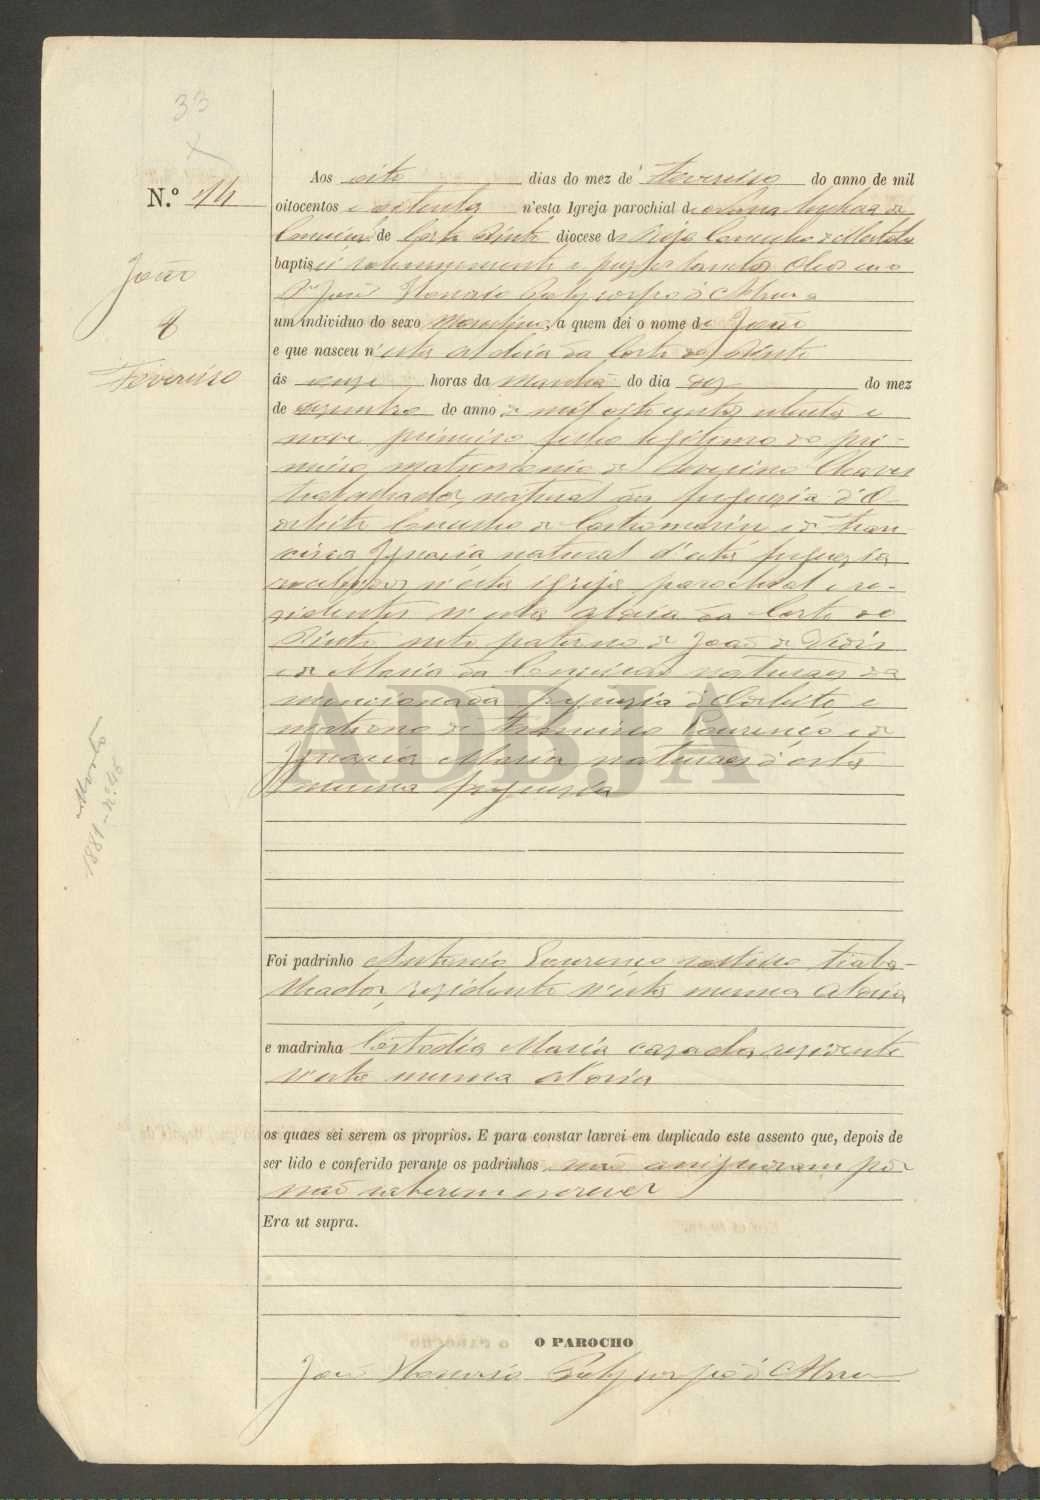 33
N.º 14
João
8
Fevereiro
Morto
1881 - nº 46
Aos oito dias do mez de Fevereiro do anno de mil
oitocentos e oitenta n'esta Igreja parochial de
de Corte Pinto diocese de Beja Concelho de Mertola
baptisei solemnemente e puz os Santos Oleos eu o
João
um individuo do sexo Masculino, a quem dei o nome de João
e que nasceu n'esta aldeia da Corte do Pinto
ás onze horas da Manhã do dia dez do mez
de dezembro do anno de mil oito centos setenta e
nove, primeiro filho legitimo do pri-
meiro matrimonio de Severino Chaves
trabalhador, natural da freguezia d'O-
deleite Concelho de Castromarim e de Fran-
cisca Ignacia natural d'esta freguezia
recebidos n'esta igreja parochial e re-
zidentes n'esta aldeia da Corte do
Pinto neto paterno de João de
e de Maria da Conceição naturaes da
mencionada freguezia d'Odeleite, e
materno de Francisco Lourenço e de
Ignacia Maria naturaes d'esta
mesma freguezia
ADBJA
Foi padrinho Antonio Lourenço solteiro traba-
lhador, rezidente n'esta mesma Aldeia
e madrinha Custodia Maria cazada rezidente
n'esta mesma Aldeia
os quaes sei serem os proprios. E para constar lavrei em duplicado este assento que, depois de
ser lido e conferido perante os padrinhos não assignaram por
não saberem escrever
Era ut supra.
O PAROCHO
João